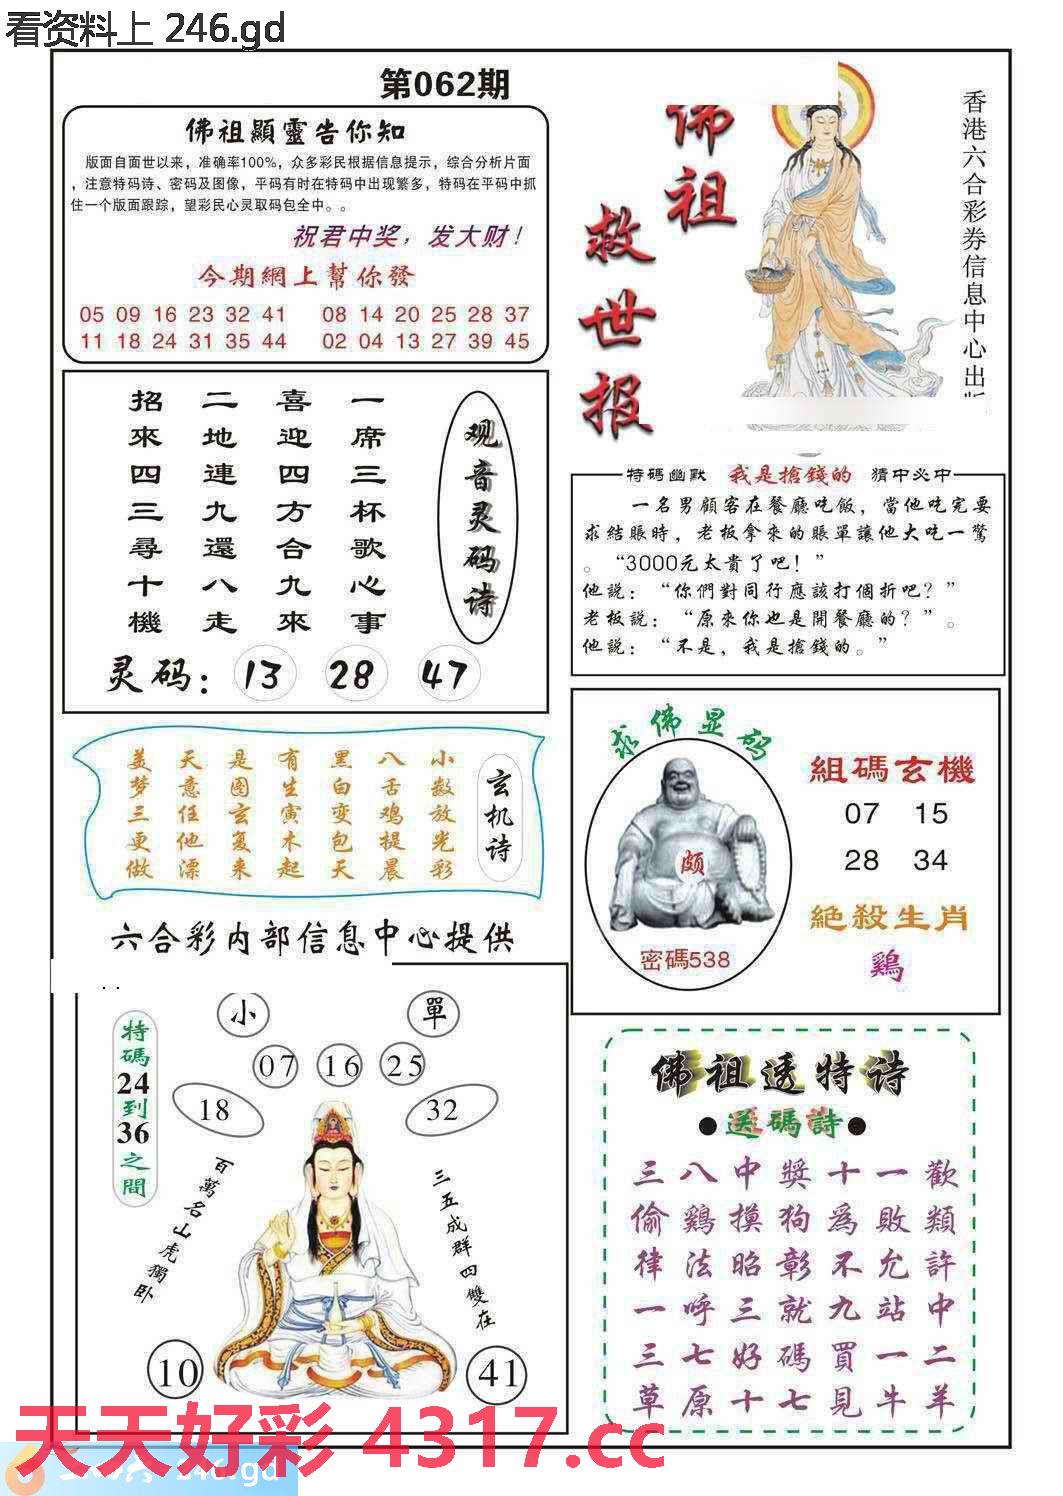 看资料上 246.gd
第062期
佛祖顯靈告你知
版面自面世以来，准确率100%，众多彩民根据信息提示，综合分析片面
，注意特码诗、密码及图像，平码有时在特码中出现繁多，特码在平码中抓
住一个版面跟踪，望彩民心灵取码包全中。。
祝君中奖，发大财！
今期網上幫你發
05 09 16 23 32 41 08 14 20 25 28 37
11 18 24 31 35 44 02 04 13 27 39 45
佛祖
救世报
香港六合彩券信息中心出版
观音灵码诗
一席三杯歌心事
喜迎四方合九來
二地連九還八走
招來四三尋十機
灵码：13 28 47
特碼幽默 我是搶錢的 猜中必中
一名男顧客在餐廳吃飯，當他吃完要
求結賬時，老板拿來的賬單讓他大吃一驚
。“3000元太貴了吧！”
他說：“你們對同行應該打個折吧？”
老板說：“原來你也是開餐廳的？”。
他說：“不是，我是搶錢的。”
玄机诗
小数放光彩
八舌鸡提晨
黑白变包天
有生寅木起
是图玄复来
天意任他漂
美梦三更做
六合彩内部信息中心提供
求佛显码
颇
密碼538
組碼玄機
07 15
28 34
絕殺生肖
鷄
小 單
07 16 25
18 32
特碼24到36之間
百萬名山虎獨卧
三五成群四雙在
10 41
佛祖透特诗
●送碼詩●
歡類許中二羊
一敗允站一牛
十為不九買見
獎狗彰就碼七
中摸昭三好十
八鷄法呼七原
三偷律一三草
天天好彩 4317.cc
246.gd